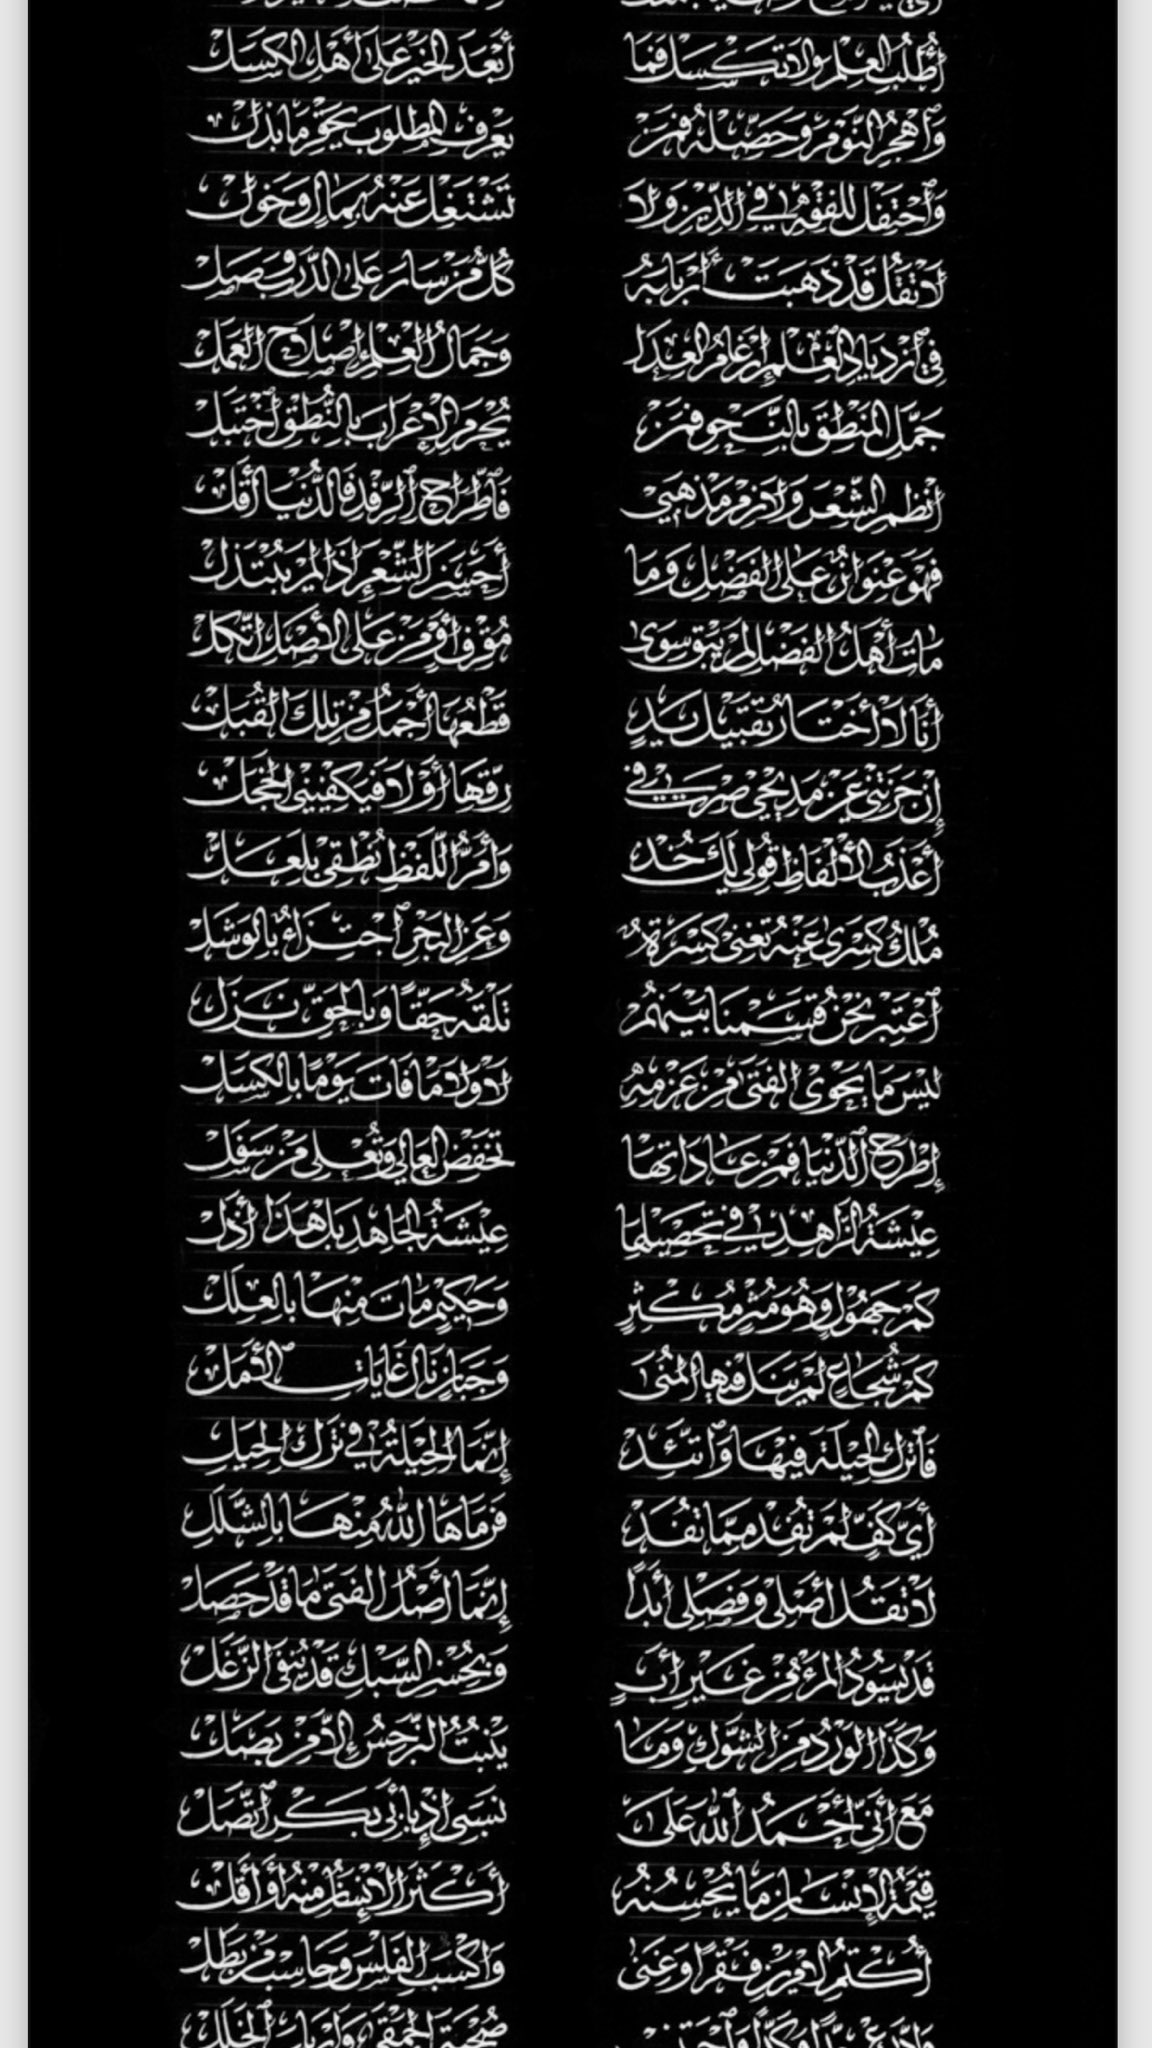 أُطْلُبِ العِلْمَ وَلَا تَكْسَلْ فَمَا أَبْعَدَ الخَيْرَ عَلَى أَهْلِ الكَسَلْ
وَاهْجُرِ النَّوْمَ وَحَصِّلْهُ فَمَنْ يَعْرِفِ المَطْلُوبَ يَحْقِرْ مَا بَذَلْ
وَاحْتَفِلْ لِلْفِقْهِ فِي الدِّيْنِ وَلَا تَشْتَغِلْ عَنْهُ بِمَالٍ وَخَوَلْ
لَا تَقُلْ قَدْ ذَهَبَتْ أَرْبَابُهُ كُلُّ مَنْ سَارَ عَلَى الدَّرْبِ وَصَلْ
فِي ازْدِيَادِ العِلْمِ إِرْغَامُ العِدَا وَجَمَالُ العِلْمِ إِصْلَاحُ العَمَلْ
جَمِّلِ المَنْطِقَ بِالنَّحْوِ فَمَنْ يُحْرَمِ الإِعْرَابَ بِالنُّطْقِ اخْتَبَلْ
انْظِمِ الشِّعْرَ وَلَازِمْ مَذْهَبِي فَاطِّرَاحُ الرِّفْدِ فَالدُّنْيَا أَقَلْ
فَهْوَ عِنْوَانٌ عَلَى الفَضْلِ وَمَا أَحْسَنَ الشِّعْرَ إِذَا لَمْ يُبْتَذَلْ
مَاتَ أَهْلُ الفَضْلِ لَمْ يَبْقَ سِوَى مُقْرِفٍ أَوْ مَنْ عَلَى الأَصْلِ اتَّكَلْ
أَنَا لَا أَخْتَارُ تَقْبِيْلَ يَدٍ قَطْعُهَا أَجْمَلُ مِنْ تِلْكَ القُبَلْ
إِنْ جَزَتْنِي عَنْ مَدِيْحِي صِرْتُ فِي رِقِّهَا أَوْ لَا فَيَكْفِيْنِي الخَجَلْ
أَعْذَبُ الأَلْفَاظِ قَوْلِي لَكَ خُذْ وَأَمَرُّ اللَّفْظِ نُطْقِي بِلَعَلّْ
مُلْكُ كِسْرَى عَنْهُ تُغْنِي كِسْرَةٌ وَعَنِ البَحْرِ اجْتِزَاءٌ بِالوَشَلْ
اعْتَبِرْ نَحْنُ قَسَمْنَا بَيْنَهُمْ تَلْقَهُ حَقًّا وَبِالحَقِّ نَزَلْ
لَيْسَ مَا يَحْوِي الفَتَى مِنْ عَزْمِهِ لَا وَلَا مَا فَاتَ يَوْمًا بِالكَسَلْ
إِطْرَحِ الدُّنْيَا فَمِنْ عَادَاتِهَا تَخْفِضُ العَالِي وَتُعْلِي مَنْ سَفَلْ
عِيْشَةُ الزَّاهِدِ فِي تَحْصِيْلِهَا عِيْشَةُ الجَاهِدِ بَلْ هَذَا أَذَلْ
كَمْ جَهُوْلٍ وَهُوَ مُثْرٍ مُكْثِرٍ وَحَكِيْمٍ مَاتَ مِنْهَا بِالعِلَلْ
كَمْ شُجَاعٍ لَمْ يَنَلْ فِيْهَا المُنَى وَجَبَانٍ نَالَ غَايَاتِ الأَمَلْ
فَاتْرُكِ الحِيْلَةَ فِيْهَا وَاتَّئِدْ إِنَّمَا الحِيْلَةُ فِي تَرْكِ الحِيَلِ
أَيُّ كَفٍّ لَمْ تُفِدْ مِمَّا تُفَدْ فَرَمَاهَا اللهُ مِنْهَا بِالشَّلَلِ
لَا تَقُلْ أَصْلِي وَفَصْلِي أَبَدًا إِنَّمَا أَصْلُ الفَتَى مَا قَدْ حَصَلْ
قَدْ يَسُوْدُ المَرْءُ مِنْ غَيْرِ أَبٍ وَبِحُسْنِ السَّبْكِ قَدْ يُنْفَى الزَّغَلْ
وَكَذَا الوَرْدُ مِنَ الشَّوْكِ وَمَا يَنْبُتُ النَّرْجِسُ إِلَّا مِنْ بَصَلْ
مَعَ أَنِّي أَحْمَدُ اللهَ عَلَى نَسَبِي إِذْ بِأَبِي بَكْرِ اتَّصَلْ
قِيْمَةُ الإِنْسَانِ مَا يُحْسِنُهُ أَكْثَرَ الإِنْسَانُ مِنْهُ أَوْ أَقَلْ
أُكْتُمِ الأَمْرَيْنِ فَقْرًا وَغِنَى وَاكْسَبِ الفَلْسَ وَحَاسِبْ مَنْ بَطَلْ